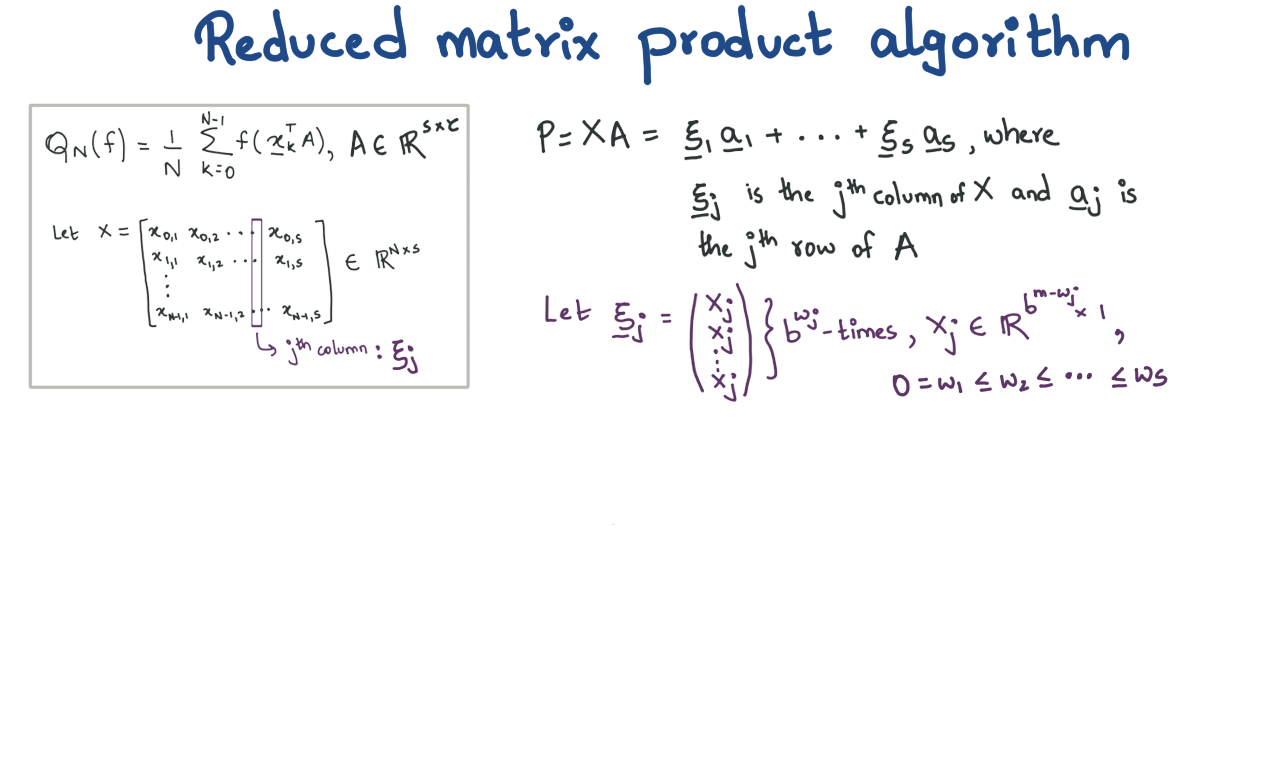 Reduced matrix product algorithm
Q_N(f) = 1/N ∑_{k=0}^{N-1} f(x_k^T A), A ∈ ℝ^{s×τ}
Let X = [x_{0,1} x_{0,2} ... x_{0,s}
x_{1,1} x_{1,2} ... x_{1,s}
⋮
x_{N-1,1} x_{N-1,2} ... x_{N-1,s}] ∈ ℝ^{N×s}
↳ j^{th} column : ξ_j
P = XA = ξ_1 a_1 + ... + ξ_s a_s, where
ξ_j is the j^{th} column of X and a_j is
the j^{th} row of A
Let ξ_j = (X_j X_j ⋮ X_j) } b^{w_j}-times, X_j ∈ ℝ^{b^{m-w_j} × 1},
0 = w_1 ≤ w_2 ≤ ... ≤ w_s